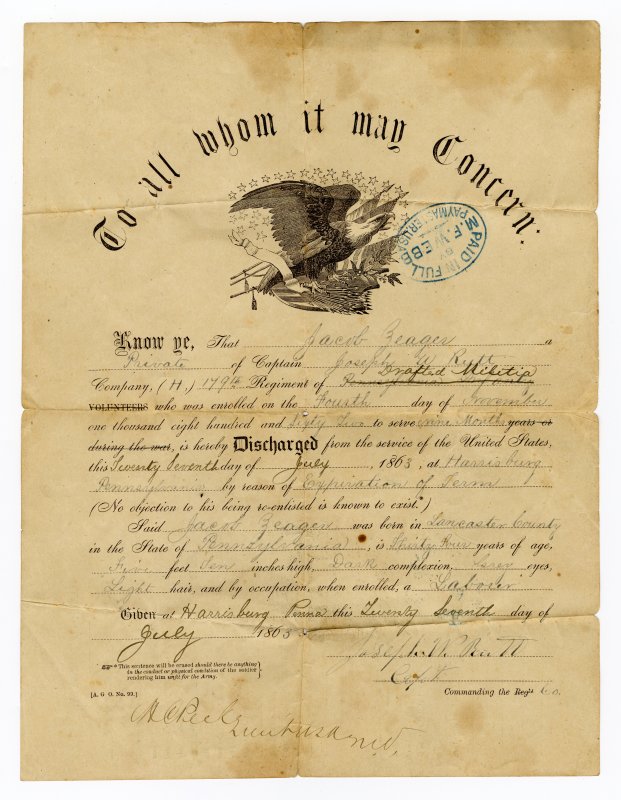 To all whom it may Concern:
PAID IN FULL
BY
F. W. E B
PAYMASTER U.S.A.
Know ye, That Jacob Zeager a
Private of Captain Joseph W Rutt
Drafted Militia
Company, (H,) 179th Regiment of Pennsylvania
VOLUNTEERS who was enrolled on the Fourth day of November
one thousand eight hundred and Sixty Two to serve nine Months years or
during the war, is hereby Discharged from the service of the United States,
this Twenty Seventh day of July, 1863, at Harrisburg
Pennsylvania by reason of Expiration of Term
(No objection to his being re-enlisted is known to exist.*)
Said Jacob Zeager was born in Lancaster County
in the State of Pennsylvania, is Thirty Four years of age,
Five feet Ten inches high, Dark complexion, Grey eyes,
Light hair, and by occupation, when enrolled, a Laborer
Given at Harrisburg Penna this Twenty Seventh day of
July 1863
Joseph W. Rutt
Capt
* This sentence will be erased should there be anything
in the conduct or physical condition of the soldier
rendering him unfit for the Army.
Commanding the Reg't Co.
[A. G O. No. 99.]